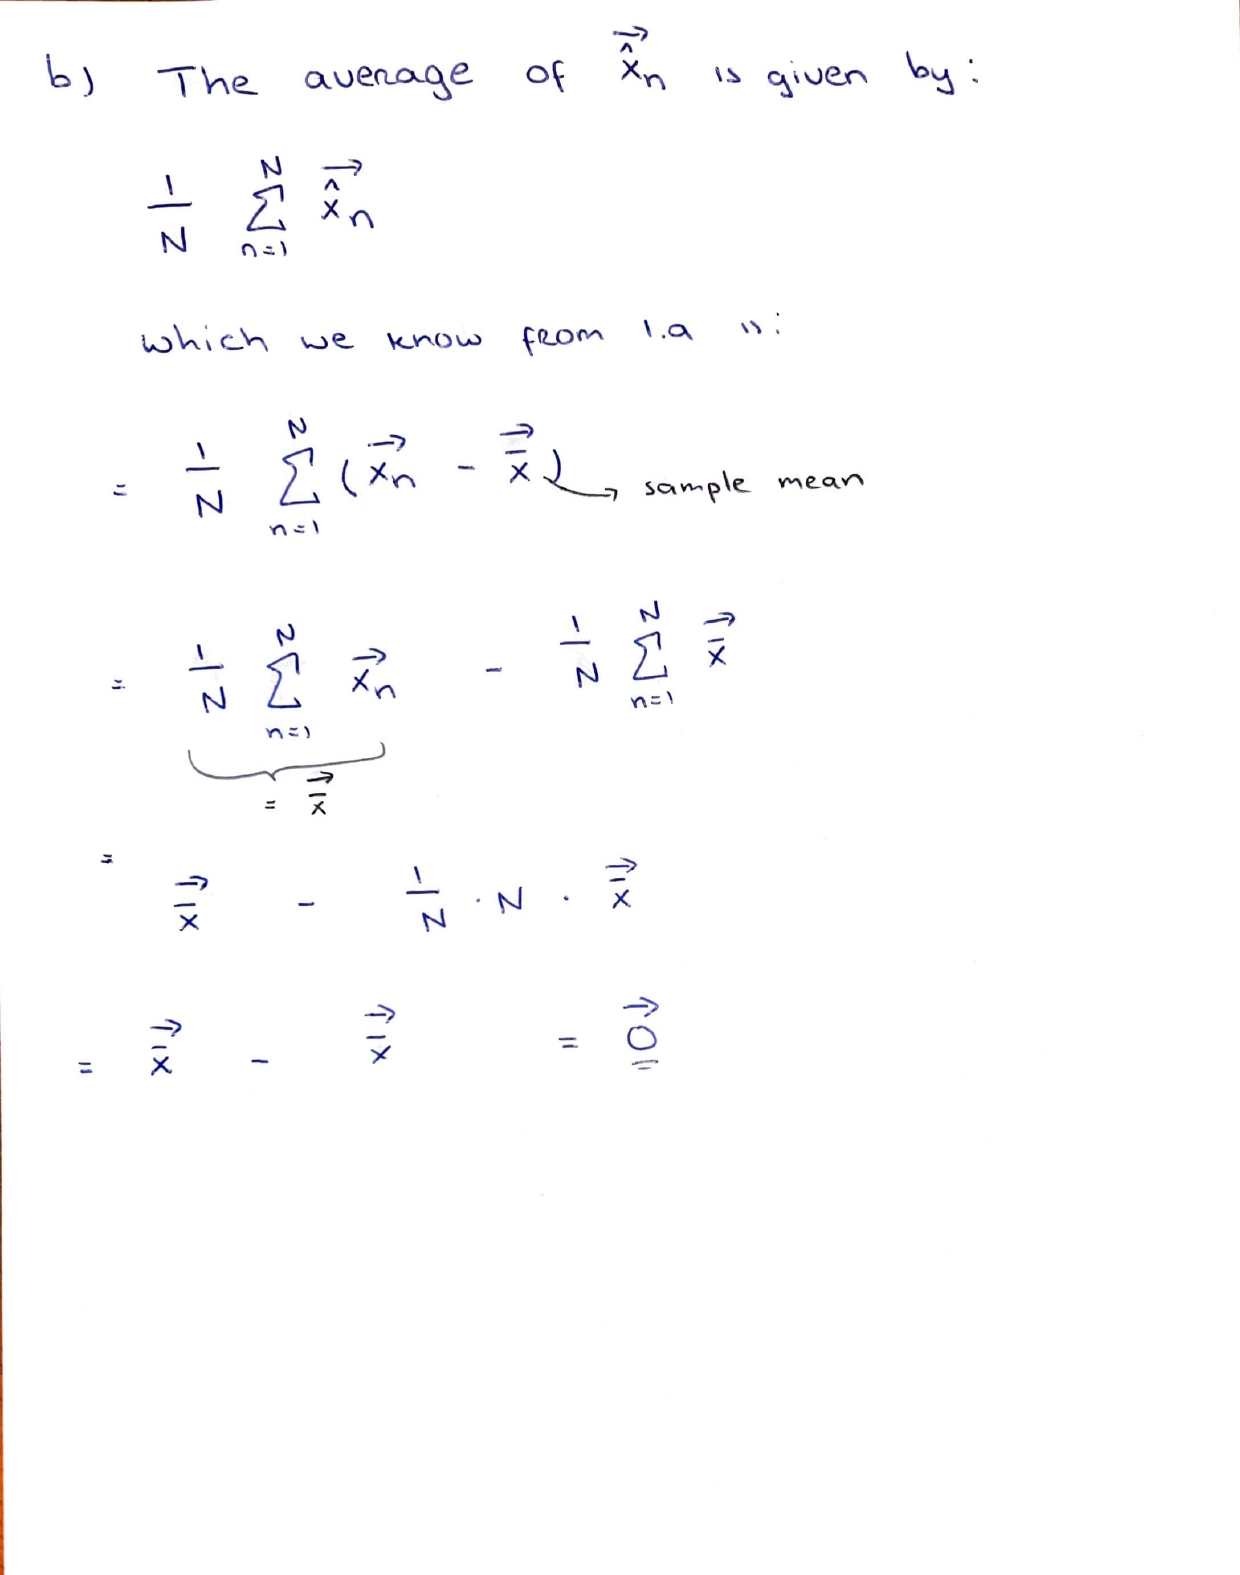 b) The average of $\vec{\hat{x}}_n$ is given by:
$\frac{1}{N} \sum_{n=1}^{N} \vec{\hat{x}}_n$
which we know from 1.a is:
$= \frac{1}{N} \sum_{n=1}^{N} (\vec{x}_n - \vec{\bar{x}})$ → sample mean
$= \underbrace{\frac{1}{N} \sum_{n=1}^{N} \vec{x}_n}_{= \vec{\bar{x}}} - \frac{1}{N} \sum_{n=1}^{N} \vec{\bar{x}}$
$= \vec{\bar{x}} - \frac{1}{N} \cdot N \cdot \vec{\bar{x}}$
$= \vec{\bar{x}} - \vec{\bar{x}} = \vec{0}$